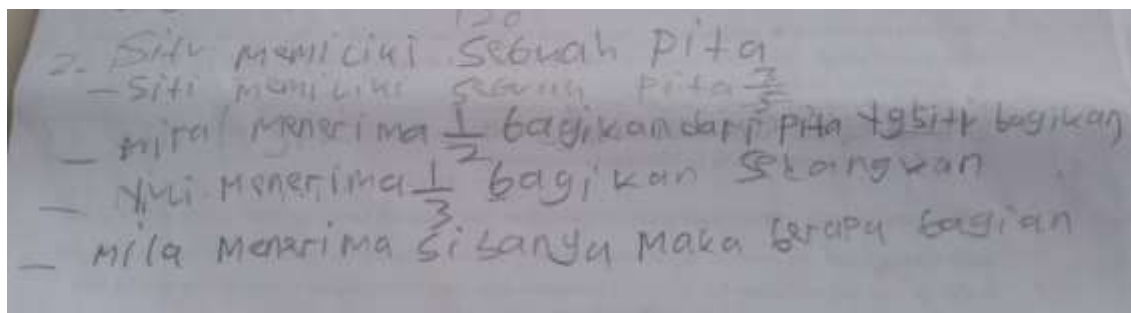 2. Siti memiliki sebuah pita
- Siti memiliki sebuah pita 3/5
- mira menerima 1/2 bagikan dari pita yg siti bagikan
- Yuli menerima 1/3 bagikan
- mila menerima sisanya maka berapa bagian